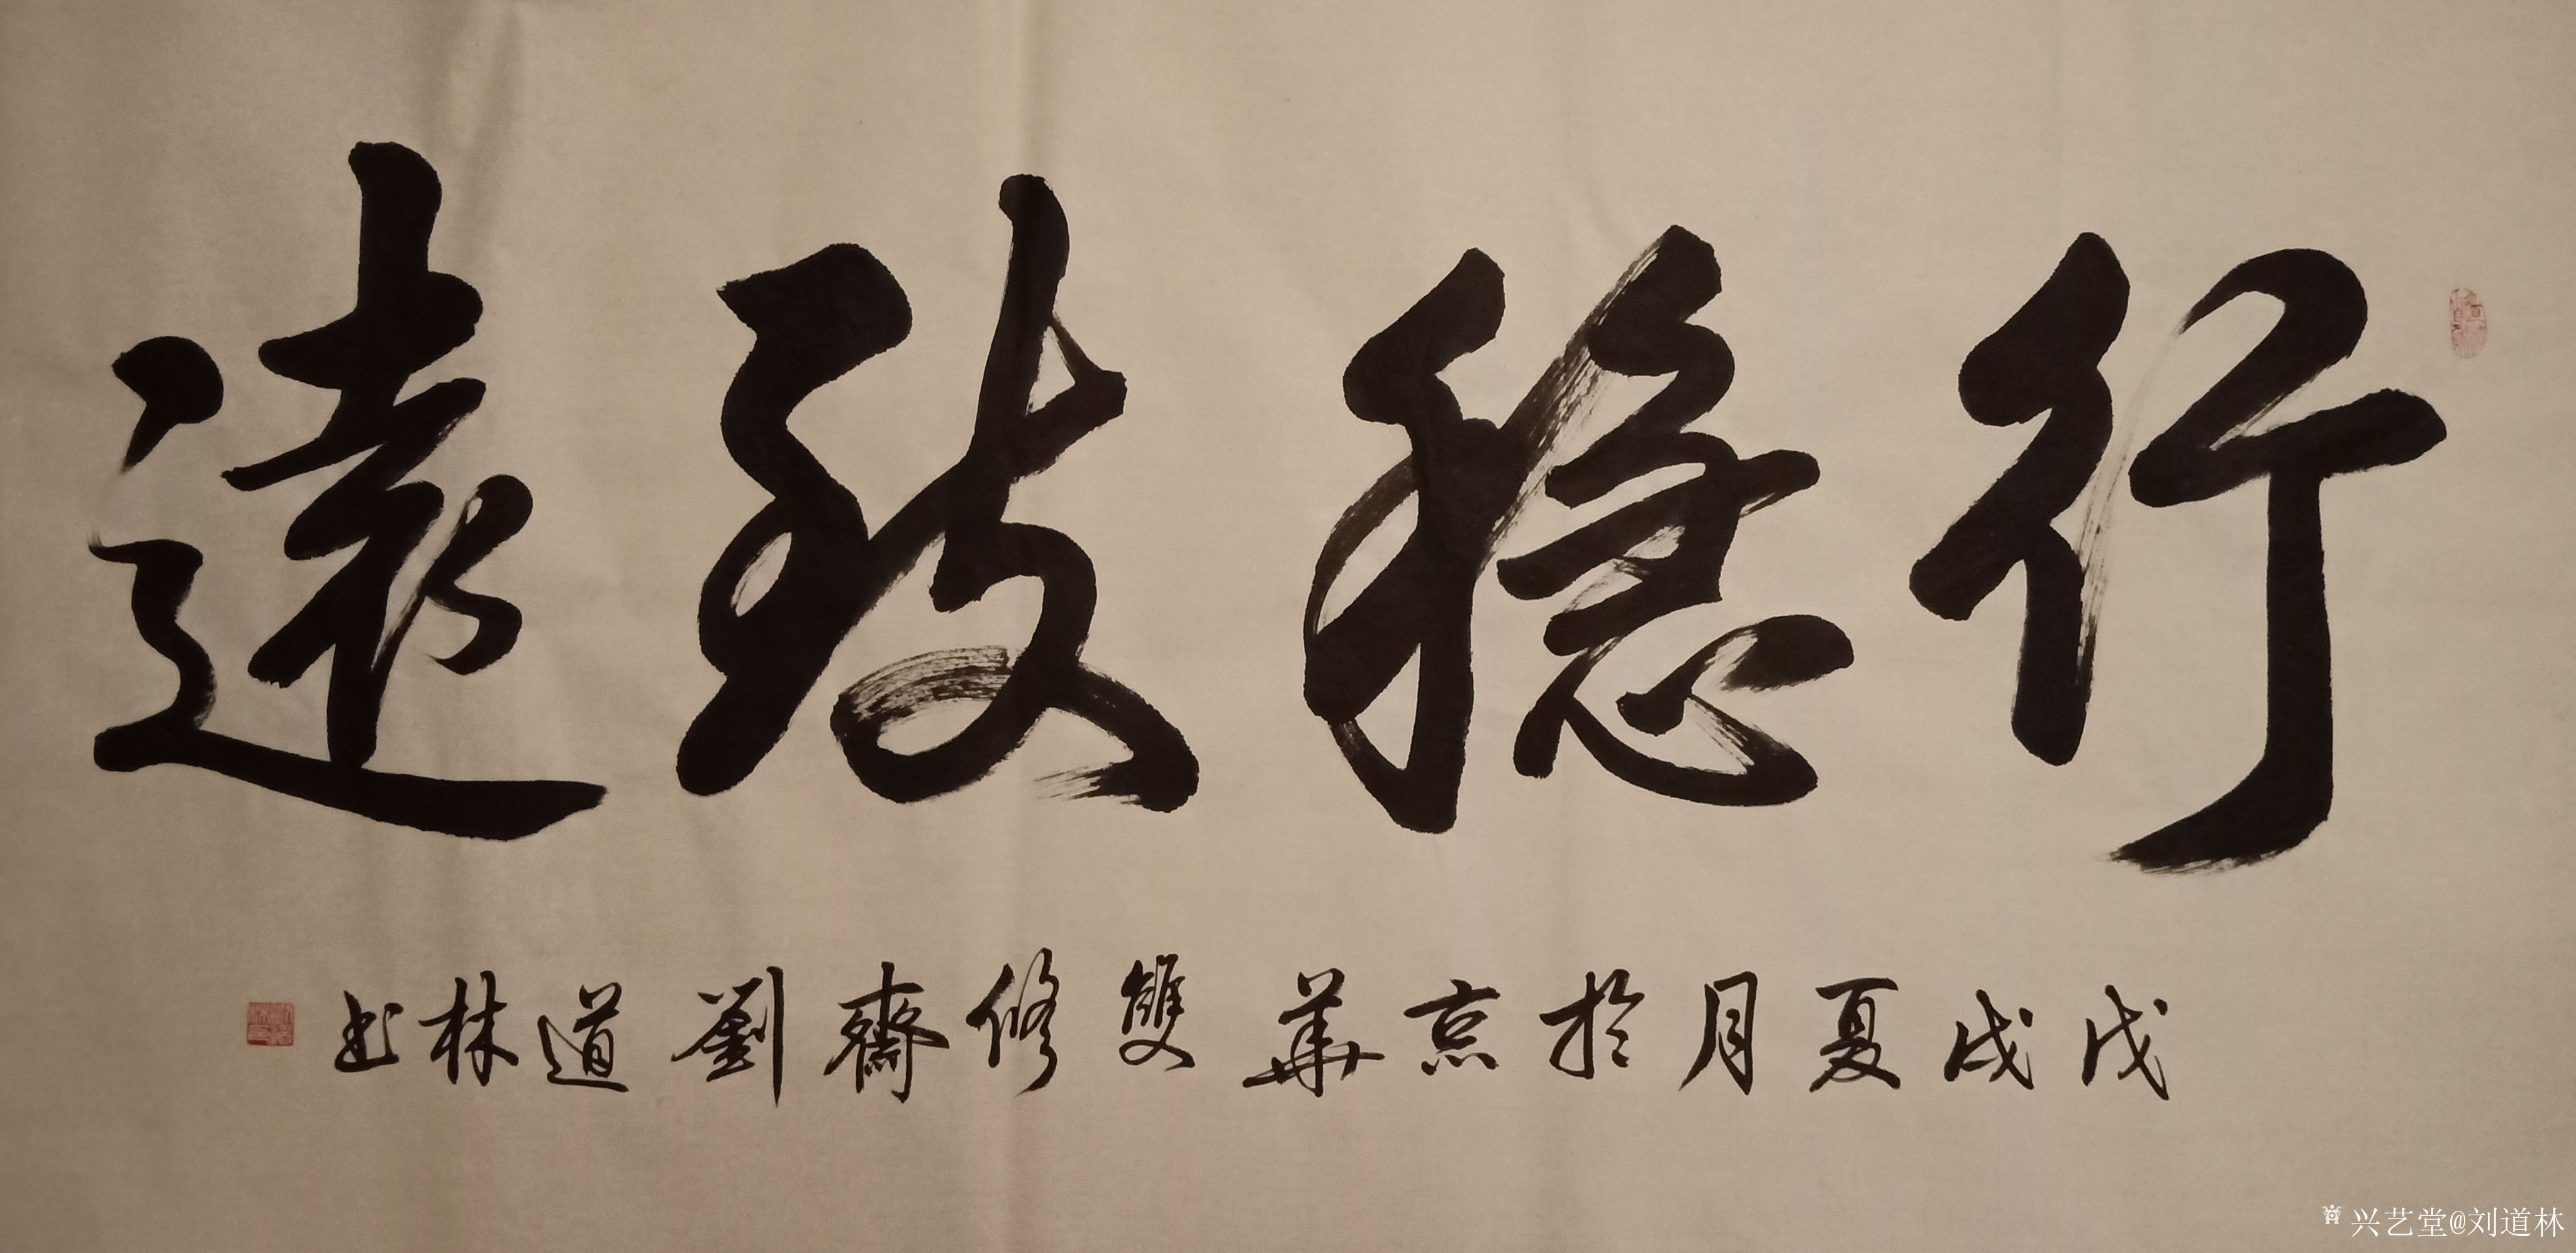 行穩致遠
戊戌夏月於京華雙修齋劉道林书
兴艺堂@刘道林